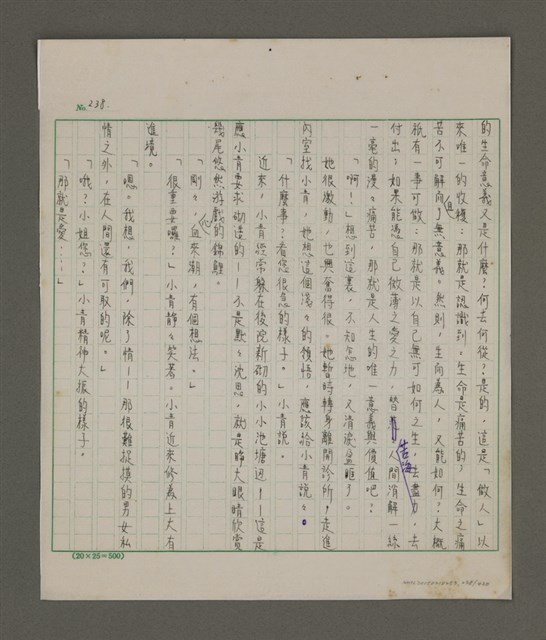 No. 238.
的生命意義又是什麼？何去何從？是的，這是「做人」以
來唯一的收穫：那就是認識到，生命是痛苦的，生命之痛
苦不可解，而且了無意義。然則，生而為人，又能如何？大概
祇有一事可做：那就是以自己無可如何之生，去盡力，去
付出；如果能憑自己微薄之愛之力，替苦海人間消解一絲
一毫的漫漫痛苦，那就是人生的唯一意義與價值吧？
「啊！」想到這裏，不知怎地，又清淚盈眶了。
她很激動，也興奮得很。她暫時轉身離開診所，走進
內室找小青，她想這個淺淺的領悟，應該給小青說說。
「什麼事？看您很急的樣子。」小青說。
近來，小青經常躲在後院新砌的小小池塘邊——這是
應小青要求砌造的——不是默默沈思，就是睜大眼睛欣賞
幾尾悠然游戲的錦鯉。
「剛剛，心血來潮，有個想法。」
「很重要囉？」小青靜靜笑著。小青近來修為上大有
進境。
「嗯。我想，我們，除了情——那很難捉摸的男女私
情之外，在人間還有可取的呢。」
「哦？小姐您？」小青精神大振的樣子。
「那就是愛……」
(20×25=500)